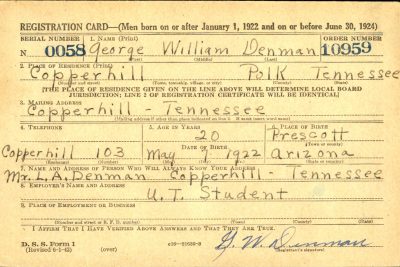 REGISTRATION CARD—(Men born on or after January 1, 1922 and on or before June 30, 1924)
SERIAL NUMBER 1. NAME (Print) ORDER NUMBER
N 0058 George William Denman 10959
2. PLACE OF RESIDENCE (Print)
Copperhill Polk Tennessee
(Number and street) (Town, township, village, or city) (County) (State)
[THE PLACE OF RESIDENCE GIVEN ON THE LINE ABOVE WILL DETERMINE LOCAL BOARD
JURISDICTION; LINE 2 OF REGISTRATION CERTIFICATE WILL BE IDENTICAL]
3. MAILING ADDRESS
Copperhill - Tennessee
(Mailing address if other than place indicated on line 2. If same insert word same)
4. TELEPHONE 5. AGE IN YEARS 6. PLACE OF BIRTH
20 Prescott
DATE OF BIRTH (Town or county)
Copperhill 103 May 1922 Arizona
(Exchange) (Number) (Mo.) (Day) (Yr.) (State or country)
7. NAME AND ADDRESS OF PERSON WHO WILL ALWAYS KNOW YOUR ADDRESS
Mr. L.A. Denman Copperhill - Tennessee
8. EMPLOYER'S NAME AND ADDRESS
U.T. Student
9. PLACE OF EMPLOYMENT OR BUSINESS
(Number and street or R. F. D. number) (Town) (County) (State)
I AFFIRM THAT I HAVE VERIFIED ABOVE ANSWERS AND THAT THEY ARE TRUE.
D. S. S. Form 1
(Revised 6-1-42) (over) G. W. Denman